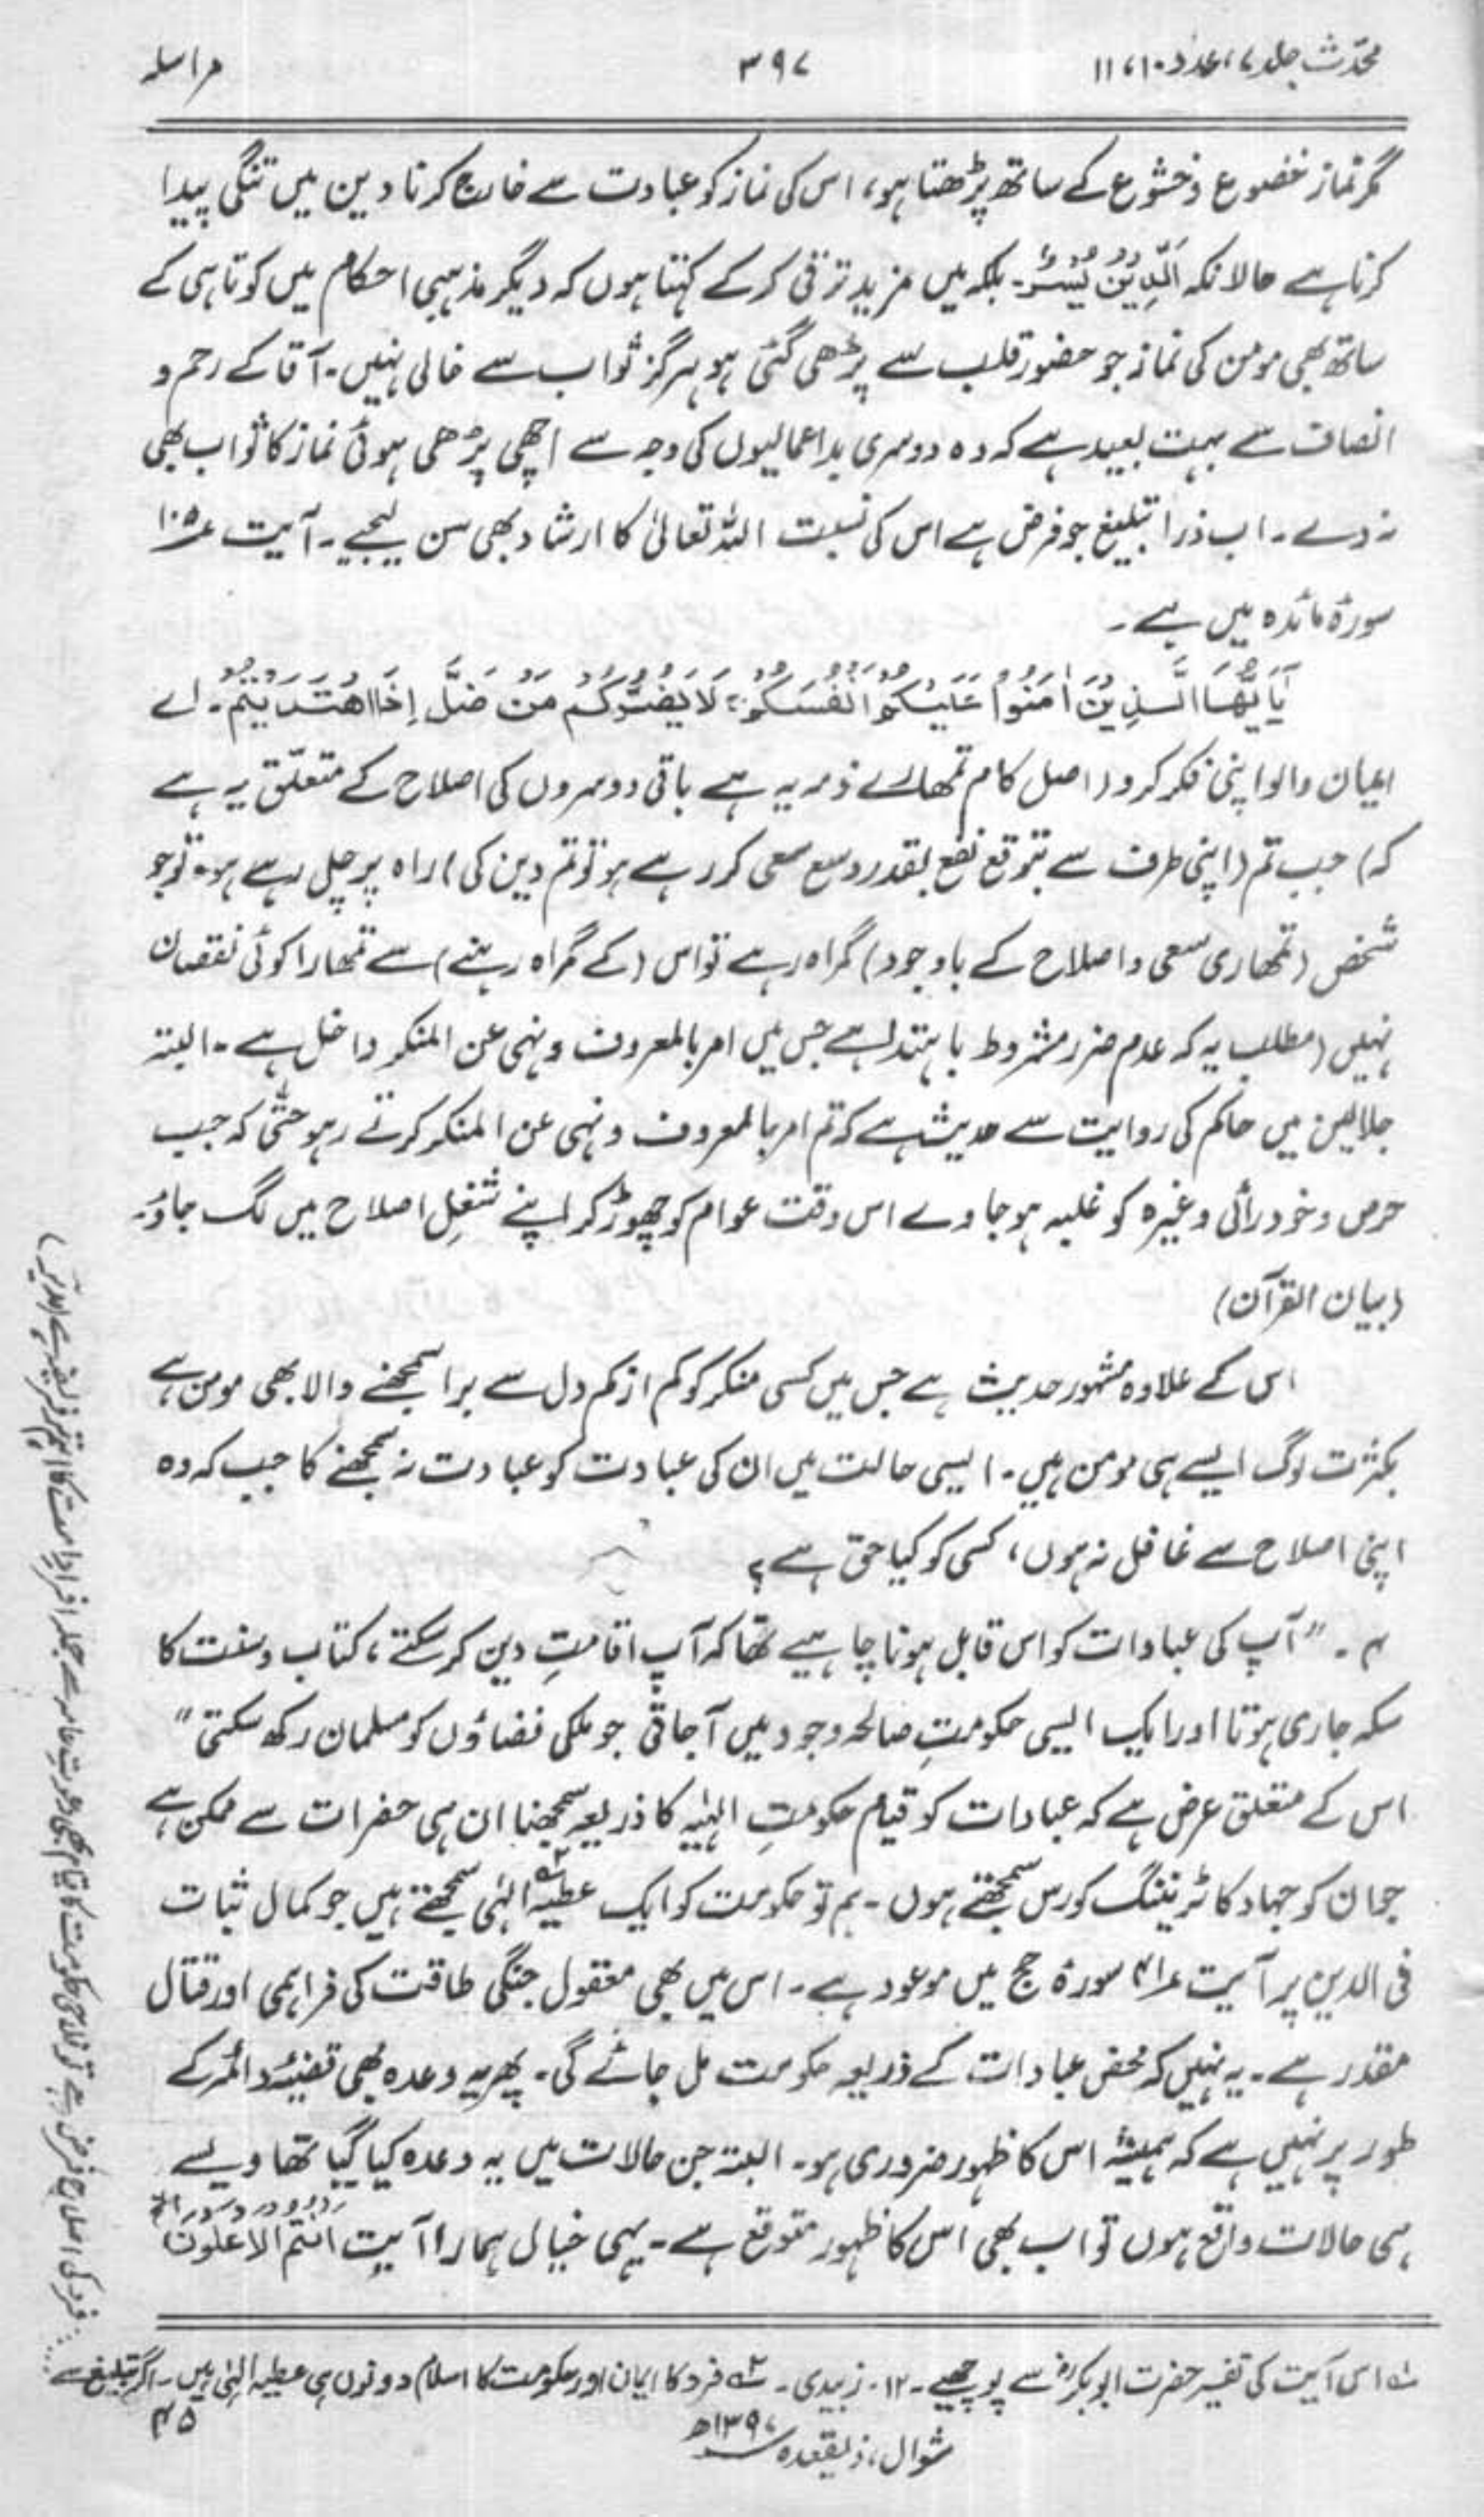 محدّث جلد ۷، عدد ۱۰، ۱۱
۳۹۷
مراسلہ
مگر نماز خضوع و خشوع کے ساتھ پڑھتا ہو، اس کی نماز کو عبادت سے خارج کرنا دین میں تنگی پیدا
کرنا ہے حالانکہ اَلدِّیْنُ یُسْرٌ۔ بلکہ میں مزید ترقی کر کے کہتا ہوں کہ دیگر مذہبی احکام میں کوتاہی کے
ساتھ بھی مومن کی نماز جو حضور قلب سے پڑھی گئی ہو ہرگز ثواب سے خالی نہیں۔ آقا کے رحم و
انصاف سے بہت بعید ہے کہ وہ دوسری بداعمالیوں کی وجہ سے اچھی پڑھی ہوئی نماز کا ثواب بھی
نہ دے۔ اب ذرا تبلیغ جو فرض ہے اس کی نسبت اللہ تعالیٰ کا ارشاد بھی سن لیجیے۔ آیت ۱۰۵
سورۂ مائدہ میں ہے۔
یٰۤاَیُّهَا الَّذِیْنَ اٰمَنُوْا عَلَیْکُمْ اَنْفُسَکُمْ ۚ لَا یَضُرُّکُمْ مَنْ ضَلَّ اِذَا اهْتَدَیْتُمْ۔ اے
ایمان والو اپنی فکر کرو (اصل کام تمھارے ذمہ یہ ہے باقی دوسروں کی اصلاح کے متعلّق یہ ہے
کہ) جب تم (اپنی طرف سے بتوقع نفع بقدر وسع سعی کر رہے ہو تو تم دین کی) راہ پر چل رہے ہو۔ تو جو
شخص (تمھاری سعی و اصلاح کے باوجود) گمراہ رہے تو اس (کے گمراہ رہنے) سے تمھارا کوئی نقصان
نہیں (مطلب یہ کہ عدم ضرر مشروط باہتدا ہے جس میں امر بالمعروف و نہی عن المنکر داخل ہے۔ البتہ
جلالین میں حاکم کی روایت سے حدیث ہے کہ تم امر بالمعروف و نہی عن المنکر کرتے رہو حتّٰی کہ جب
حرص و خود رائی وغیرہ کو غلبہ ہو جاوے اس وقت عوام کو چھوڑ کر اپنے شغلِ اصلاح میں لگ جاؤ۔
(بیان القرآن)
اس کے علاوہ مشہور حدیث ہے جس میں کسی منکر کو کم از کم دل سے برا سمجھنے والا بھی مومن ہے
بکثرت لوگ ایسے ہی مومن ہیں۔ ایسی حالت میں ان کی عبادت کو عبادت نہ سمجھنے کا جب کہ وہ
اپنی اصلاح سے غافل نہ ہوں، کسی کو کیا حق ہے؟
۴۔ "آپ کی عبادات کو اس قابل ہونا چاہیے تھا کہ آپ اقامتِ دین کر سکتے، کتاب و سنت کا
سکہ جاری ہوتا اور ایک ایسی حکومتِ صالحہ وجود میں آ جاتی جو ملکی فضاؤں کو مسلمان رکھ سکتی"
اس کے متعلق عرض ہے کہ عبادات کو قیام حکومتِ الٰہیہ کا ذریعہ سمجھنا ان ہی حضرات سے ممکن ہے
جو ان کو جہاد کا ٹریننگ کورس سمجھتے ہوں۔ ہم تو حکومت کو ایک عطیۂ۲ الٰہی سمجھتے ہیں جو کمال ثبات
فی الدین پر آیت ۴۱ سورۂ حج میں موعود ہے۔ اس میں بھی معقول جنگی طاقت کی فراہمی اور قتال
مقدر ہے۔ یہ نہیں کہ محض عبادات کے ذریعہ حکومت مل جائے گی۔ پھر یہ وعدہ بھی قضیۂ دائمہ کے
طور پر نہیں ہے کہ ہمیشہ اس کا ظہور ضروری ہو۔ البتہ جن حالات میں یہ وعدہ کیا گیا تھا ویسے
ہی حالات واقع ہوں تو اب بھی اس کا ظہور متوقع ہے۔ یہی خیال ہمارا آیت اَنْتُمُ الْاَعْلَوْنَ
۱ اس آیت کی تفسیر حضرت ابوبکرؓ سے پوچھیے۔ ۱۲۔ زبیدی۔ ۲ فرد کا ایمان اور حکومت کا اسلام دونوں ہی عطیہ الٰہی ہیں۔ اگر تبلیغ سے
فرد کی اصلاح فرض ہے تو فلاحی حکومت کا قیام بھی دعوتِ عامہ سے جملہ افرادِ امت کا اہم تر فریضہ ہے (مدیر)
۴۵
شوال، ذیقعدہ ۱۳۹۷ھ